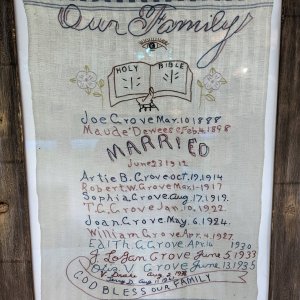 Our Family
HOLY BIBLE
Joe Grove Mar. 10 1888
Maude Deweese Feb. 4, 1898
MARRIED
June 23 1912
Artie B. Grove Oct. 19, 1914
Robert W. Grove Mar. 1-1917
Sophia Grove Aug. 17. 1919.
T. C. Grove Jan. 10. 1922.
Joan Grove. May. 6. 1924.
William Grove Apr. 4. 1927
Edith G. Grove Apr. 16 1930
J. Grove June 5 1933
V Grove June 13 1935
GOD BLESS OUR FAMILY